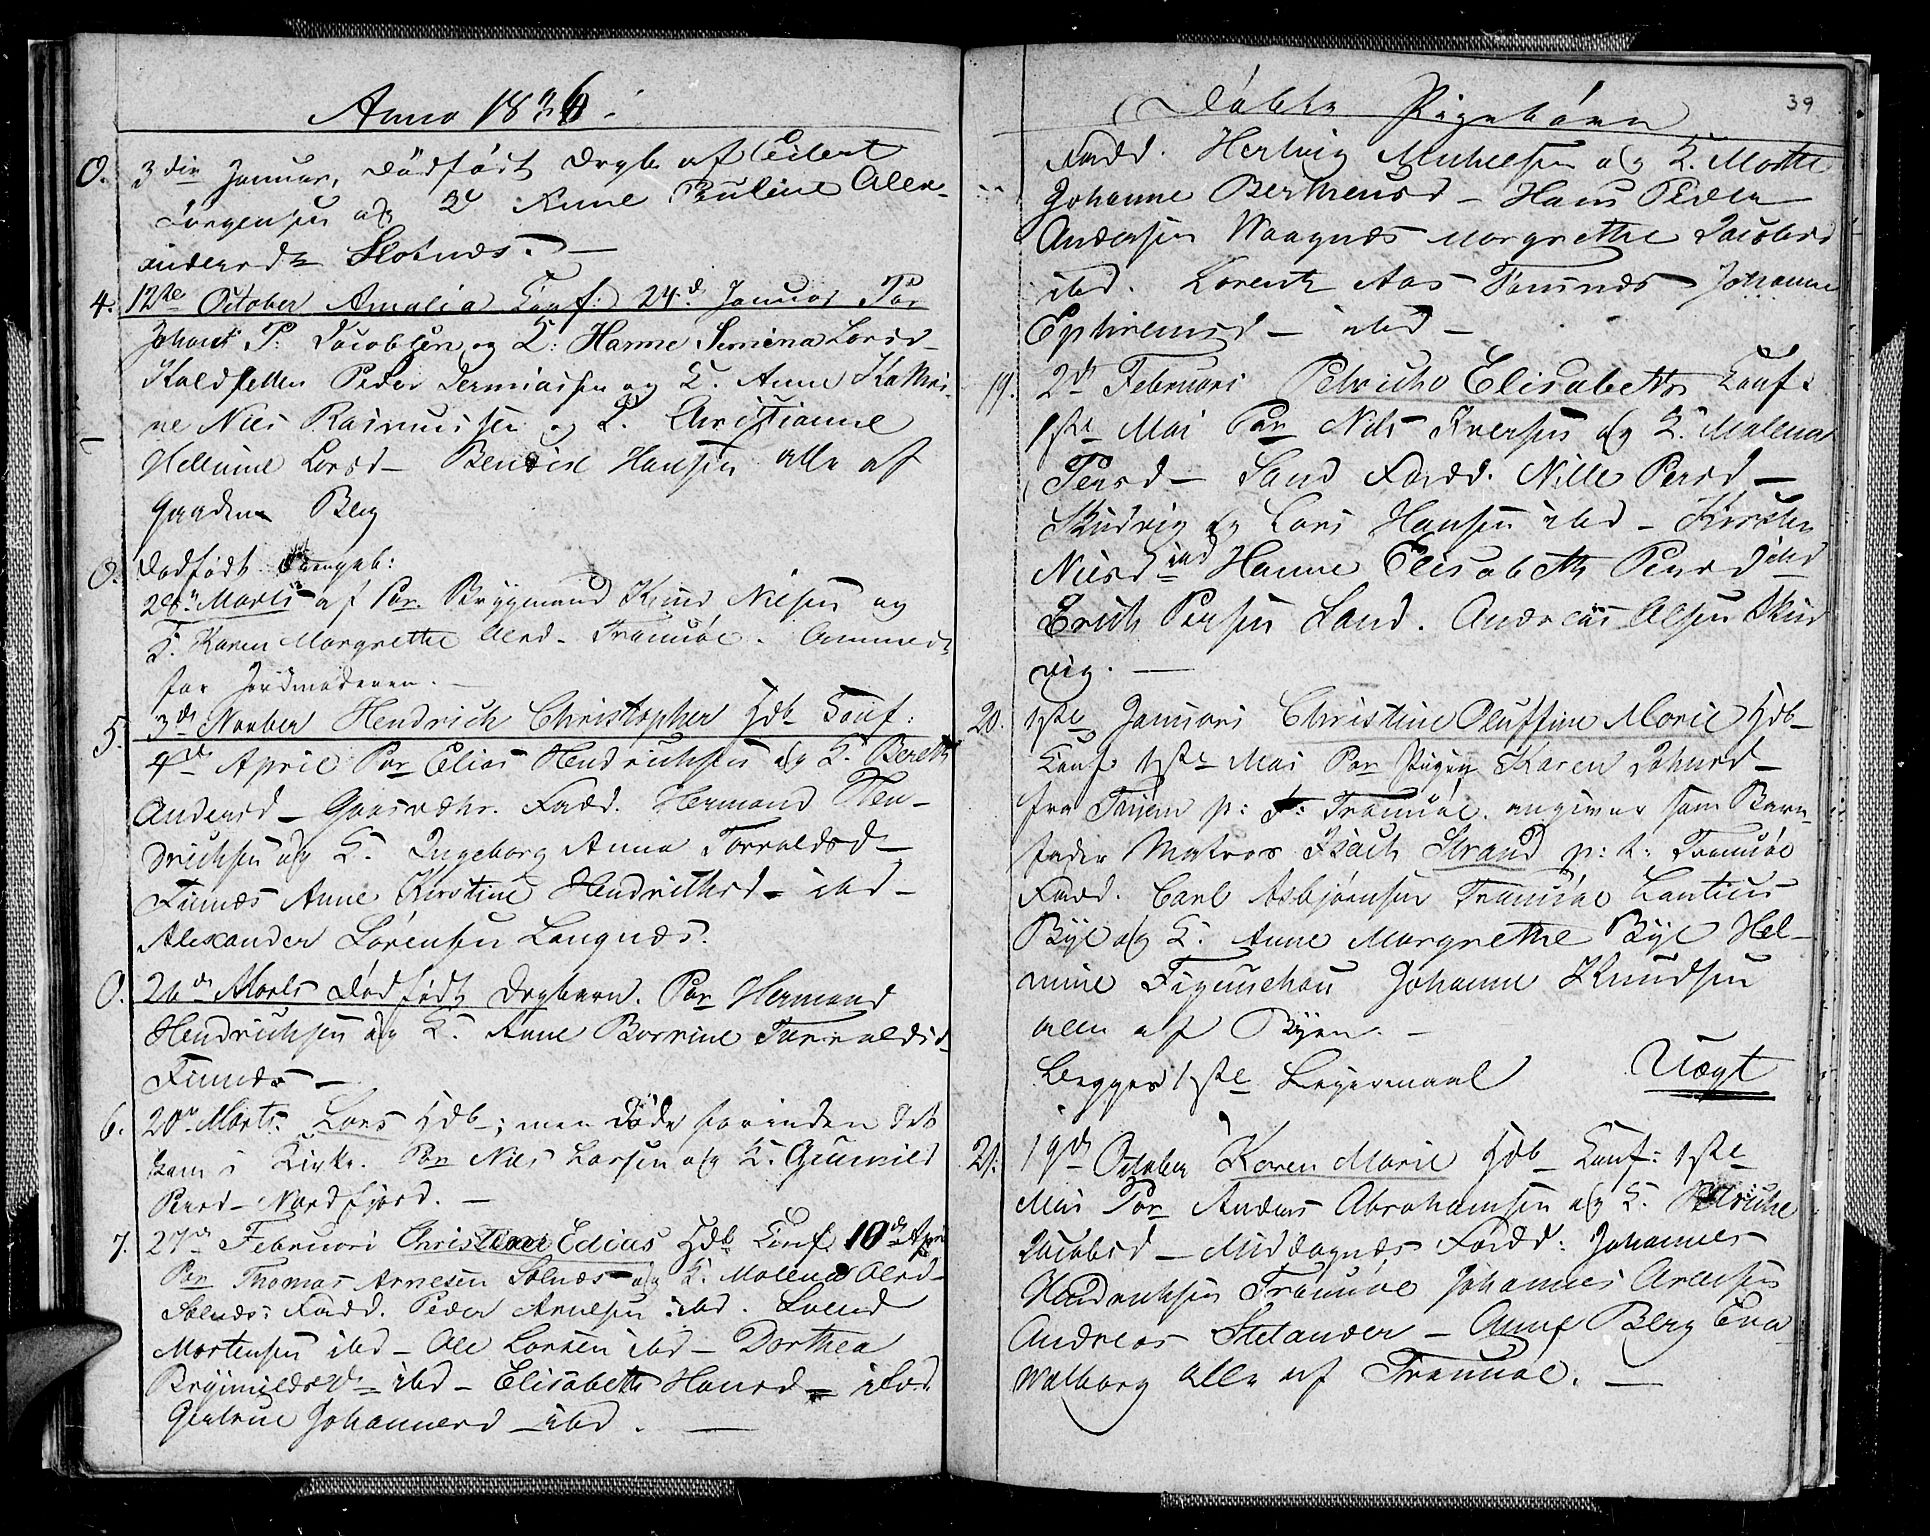 Anno 1836.
0. 3die Januar, Dødfødt Drgb. af Eilert
Jørgensen og K Anne Pauline Alex-
andersd Slotnæs. —
4. 12te October Amalia Conf: 24d. Januar Par
Johans P: Jacobsen og K: Hanne Lorsd-
Peder Jermiassen og K. Anne Kathri-
ne Niels Rasmussen og K. Christianne
Hellmine Larsd — Hansen alle af
Gaarden Berg
0. Dødfødt
Marts af Par. Brygmand Knud Nielsen og
K. Karen Margrethe Olsd- Tromsøe. Anmeldt
for Jordmoderen. —
5. 3die Novber Hendrich Christopher Hdb Conf:
4de April Par Elias Hendrichsen og K. Bereth
Andersd — Fadd. Hermand Hen-
drichsen og K. Ingeborg Anna Torvoldsd —
Finnæs Anne Kirstine Hendrichsd — ibd —
Alexander Sørensen Langnæs.
0. 26de Marts Dødfødt Drgbarn. Par Hermand
Hendrichsen og K. Anne Torvoldsd-
Finnæs —
6. 20de Marts. Lars Hdb —; men døde forinden det
kom i Kirke. Par Niels Larsen og K. Gunnild
Persd — Nordfjord. —
7. 27de Februari Edias Hdb Conf. 10de Apr
Par Thomas Arnesen Solnæs og K. Malena Olsd-
Solnæs: Fadd. Peder Arnesen ibd. Svend
Mortensen ibd — Ole Larsen ibd — Dorthea
Brynnildsd — ibd — Elisabeth Hansd — ibd.
Gertrue Johannesd — ibd. —
Døbte Pigebørn 39
Fadd. Hertvig Michelsen og K. Marthe
Johanne Berthensd — Hans Peder
Andersen Waagnæs Margrethe Jacobsd
ibd. Lorentz Aas Tønsnæs Johanne
Ephremsd — ibd —
19. 2de Februari Petriche Elisabeth Conf:
1ste Mai Par Nils Iversen og K. Malena
Persd — Sand Fadd. Nille Persd —
Skudvig og Lars Hansen ibd — Kirsten
Nielsd ibd Hanne Elisabeth Persd ibd
Erich Persen Sand. Andreas Olsen Skud
vig. —
20. 1ste Januari Christine Oluffine Marie Hdb —
Conf. 1ste Mai Par Pigen Karen Johnsd —
fra p: t: Tromsøe. angiver som Barn-
fader Matros Isach Strand p: t: Tromsøe
Fadd. Carl Asbjørnsen Tromsøe Lantius
Bÿe og K. Anne Margrethe Bÿe Hel-
mine Figenschou Johanne Knudsen
alle af Byen. —
Begges 1ste Leyermaal Uægt
21. 19de October Karen Marie Hdb — Conf: 1ste
Mai Par Anders Abrahamsen og K. Petriche
Jacobsd — Middagnæs Fadd: Johannes
Hendrichsen Tromsøe Johannes Arentsen
Andreas Stelander — Anne Berg Eva
Walborg alle af Tromsøe. —